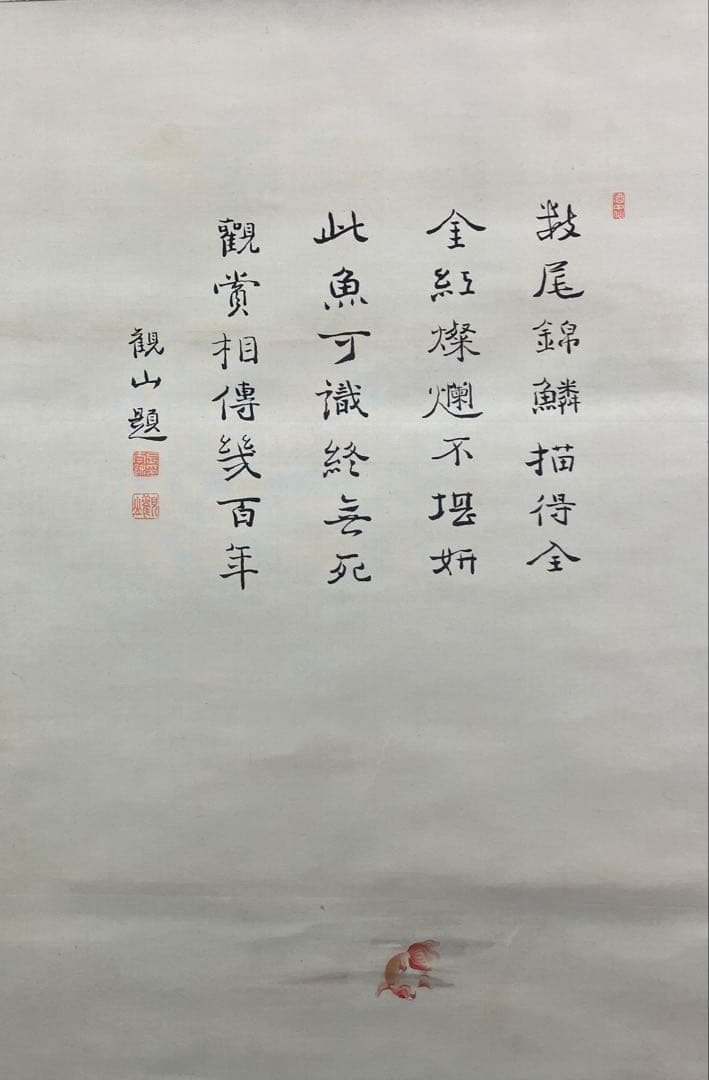 数尾錦鱗描得全
金紅燦爛不堪妍
此魚可識終無死
觀賞相傳幾百年
觀山題